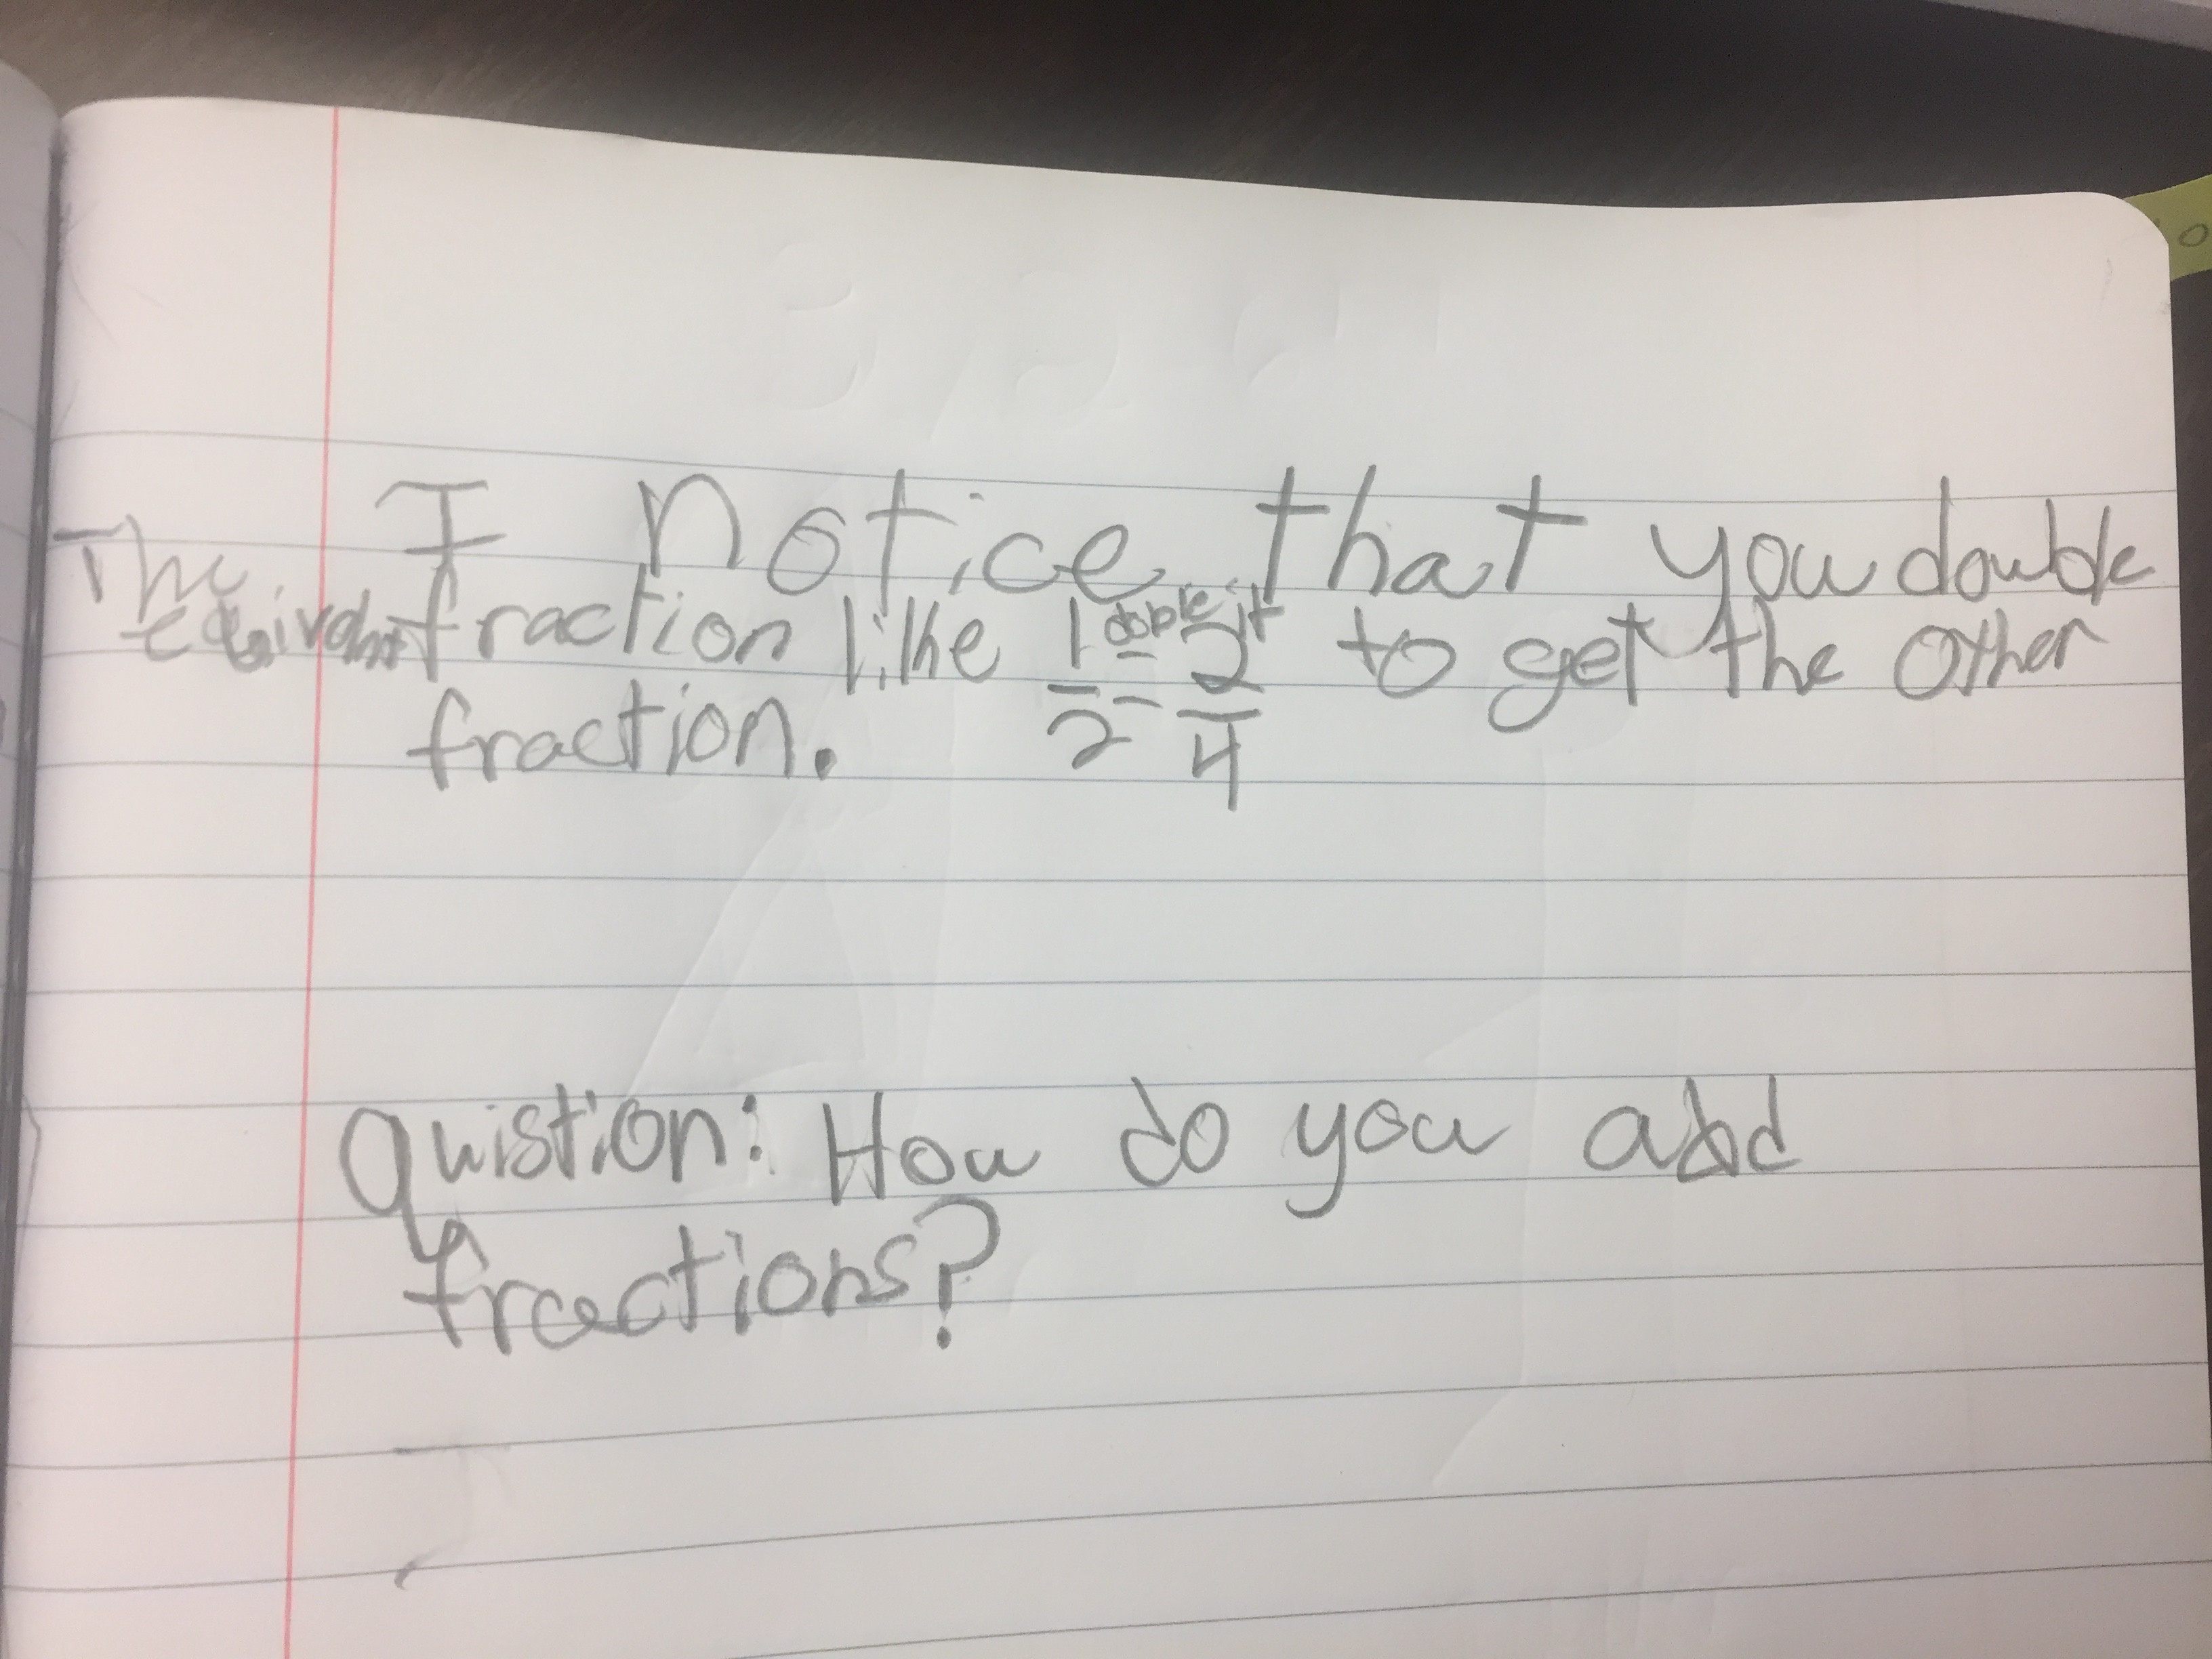 I notice that you double
The
equivalent fraction like 1/2 = 2/4 to get the other
doble it
fraction.
Quistion: How do you add
fractions?